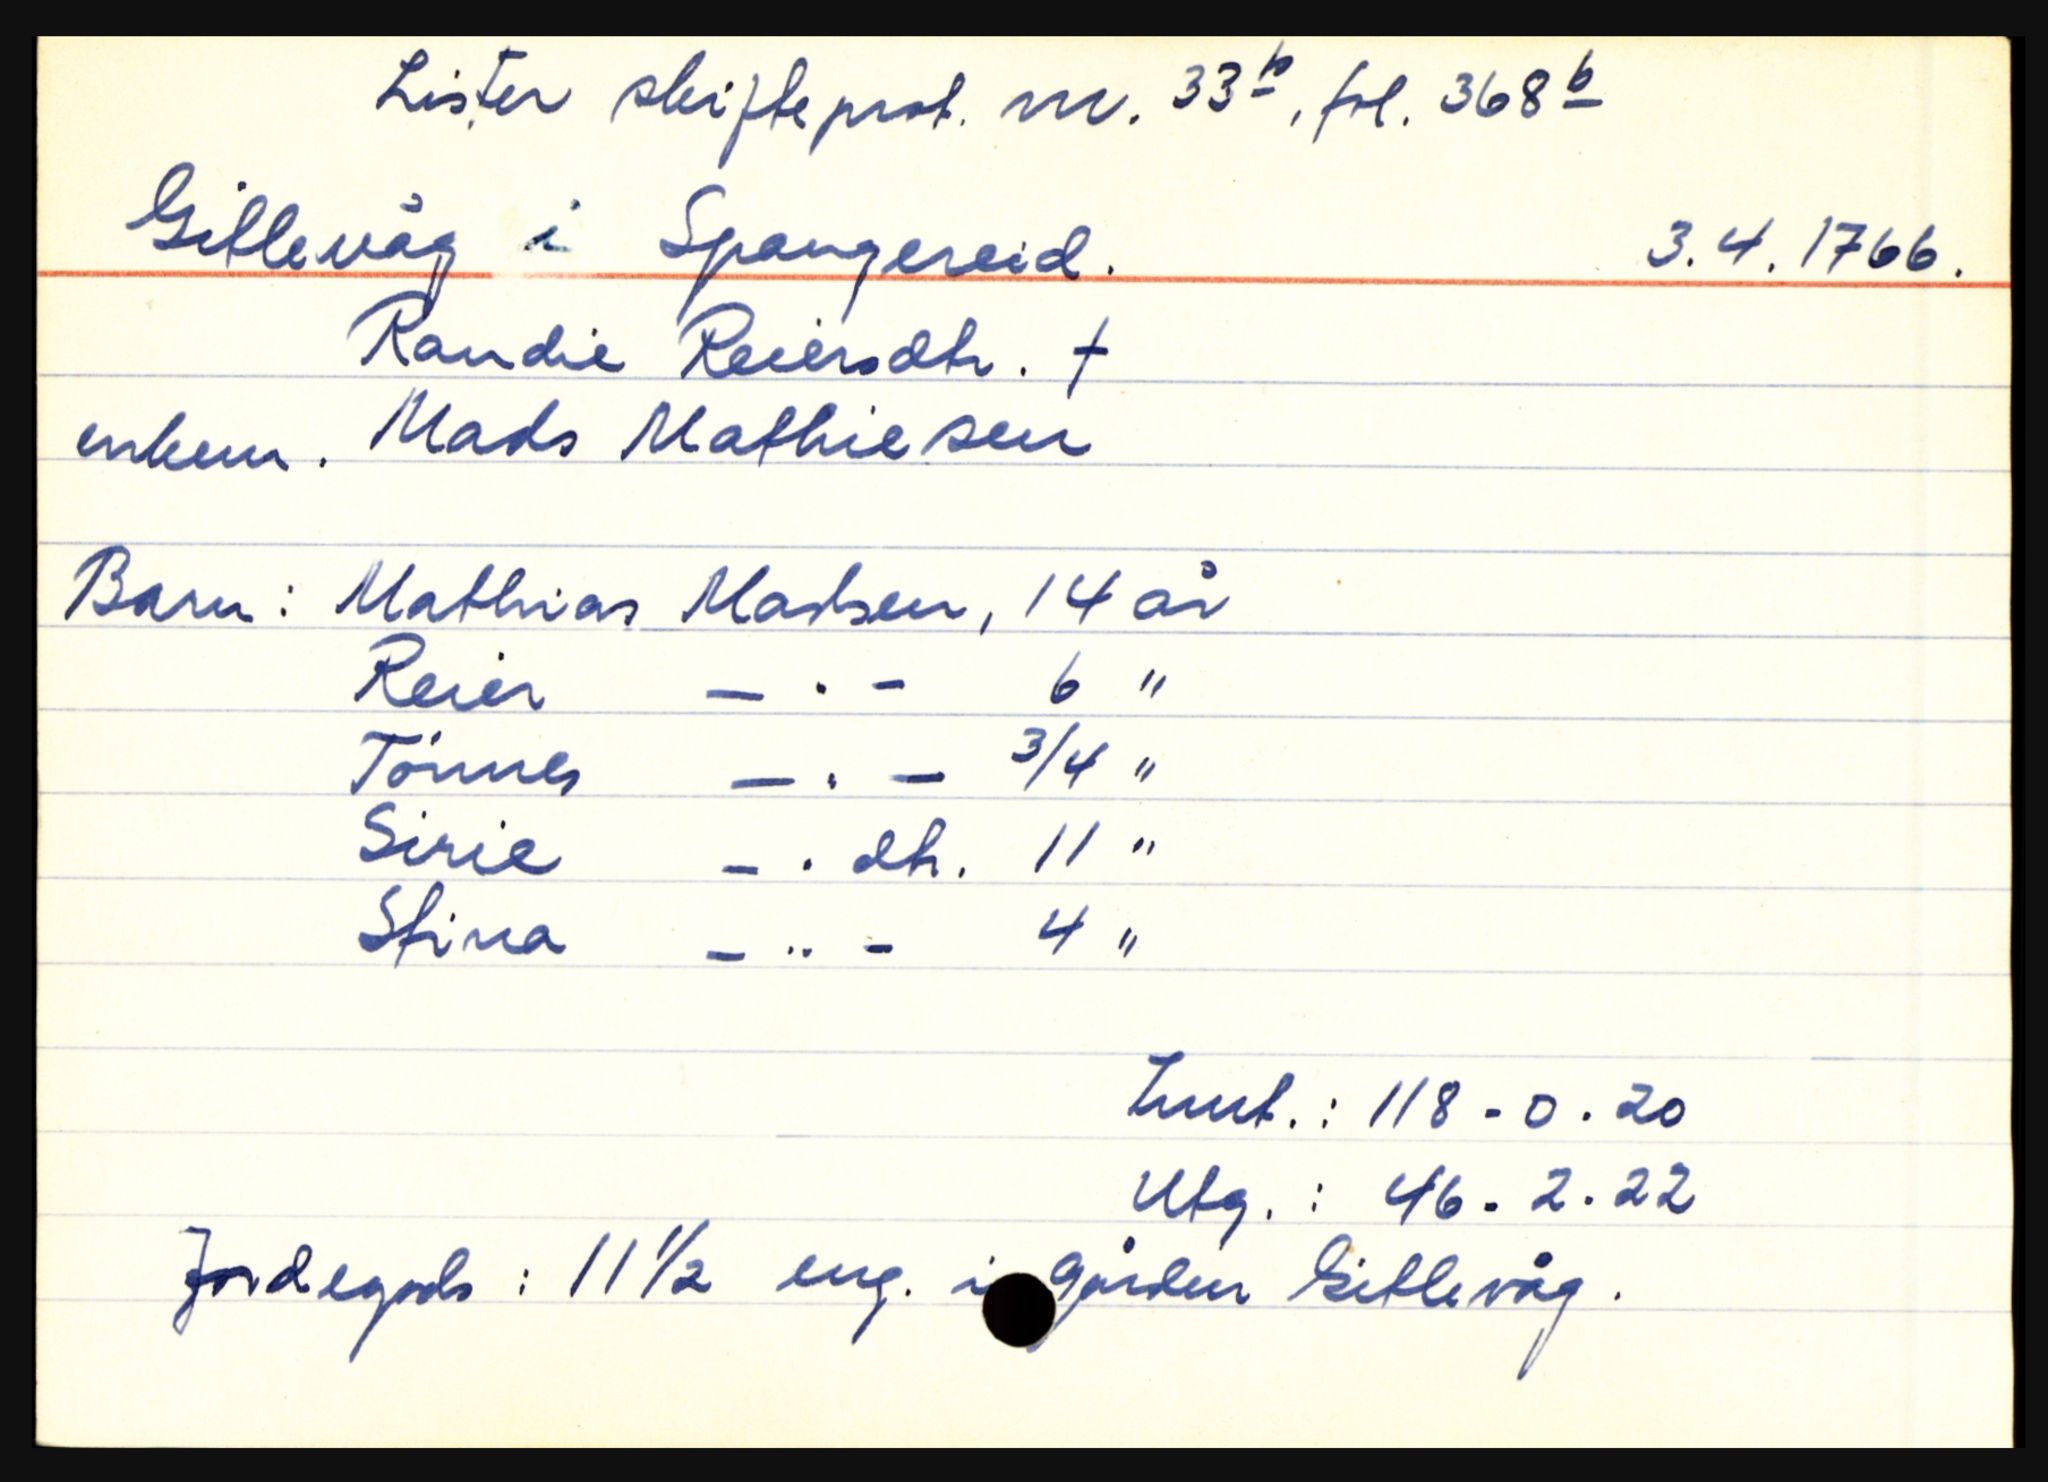 Lister skifteprot. nr. 33b, fol. 368b
Gitlevåg i Spangereid. 3.4.1766.
Randie Reiersdtr. †
enkem. Mads Mathiesen
Barn: Mathias Madsen, 14 år
Reier — . — 6 "
Tönnes — . — 3/4 "
Sirie — . dtr. 11 "
Stina — .. — 4 "
Innt. : 118 - 0 . 20
Utg. : 46 - 2 . 22
Jordegods : 11 1/2 eng. i gården Gitlevåg.